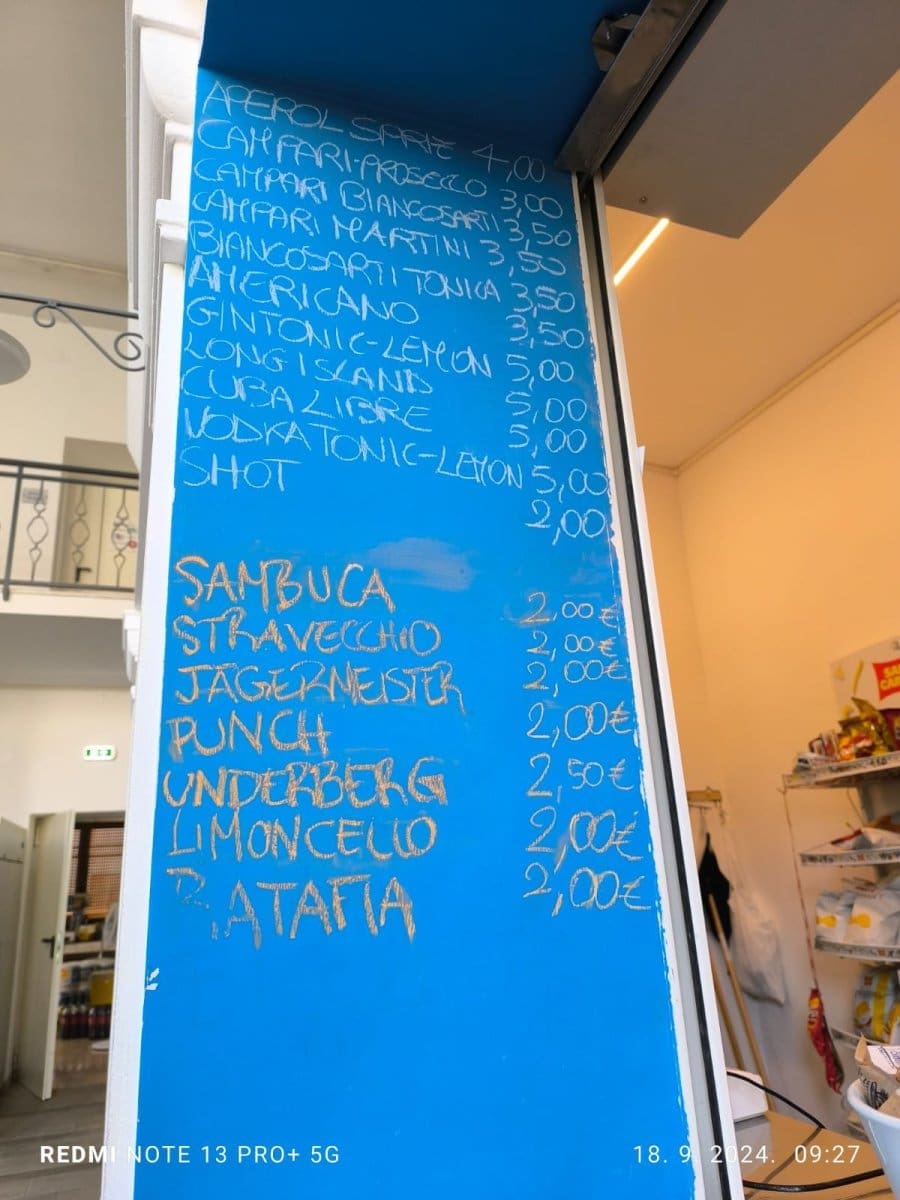 APEROL SPRITZ 4,00
CAMPARI-PROSECCO 3,00
CAMPARI BIANCOSARTI 3,50
CAMPARI MARTINI 3,50
BIANCOSARTI TONICA 3,50
AMERICANO 3,50
GINTONIC-LEMON 5,00
LONG ISLAND 5,00
CUBA LIBRE 5,00
VODKA TONIC-LEMON 5,00
SHOT 2,00
SAMBUCA 2,00€
STRAVECCHIO 2,00€
JÄGERMEISTER 2,00€
PUNCH 2,00€
UNDERBERG 2,50€
LIMONCELLO 2,00€
RATAFIA 2,00€
REDMI NOTE 13 PRO+ 5G
18. 9. 2024. 09:27